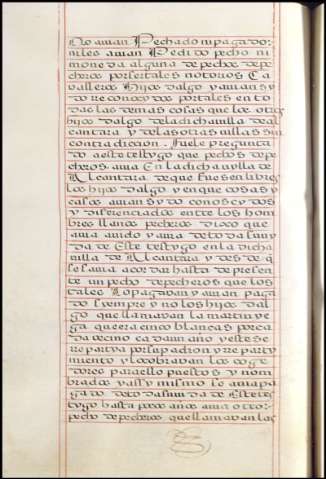 No avian Pechado ni pagado.
ni les avian Pedido pecho ni
moneda alguna de pechos de pe
cheros por ser tales notorios Ca
valleros Hijos dalgo y avian sy
do reconocydos por tales en to
das las demas cosas que los otros
hijos dalgo de la dicha villa de al
cantara y de las otras villas sin
contradicion. fuele pregunta
do a este testygo que pechos de pe
cheros avia En la dicha villa de
Alcantara de que fuesen libres
los hijos dalgo y en que cosas y
casos avian sydo conoscydos
y diferenciados entre los hom
bres llanos pecheros dixo que
avia avido y avia de todo tiempo
da de Este testygo en la dicha
villa de Alcantara y desde q̃
se savia acordar hasta de presen
te un pecho de pecheros que los
tales lo pagavan y avian paga
do siempre y no los hijos dal
go que llamavan la martynye
ga que era cinco blancas por ca
da vecino cada un año y este se
repartya por su padron y repar ty
miento y lo cobravan los coge
dores para ello puestos y nom
brados y assy mismo se avia pa
gado todo da su vida de Este tes
tygo hasta pocos años avia otro
pecho de pecheros que llamavan las